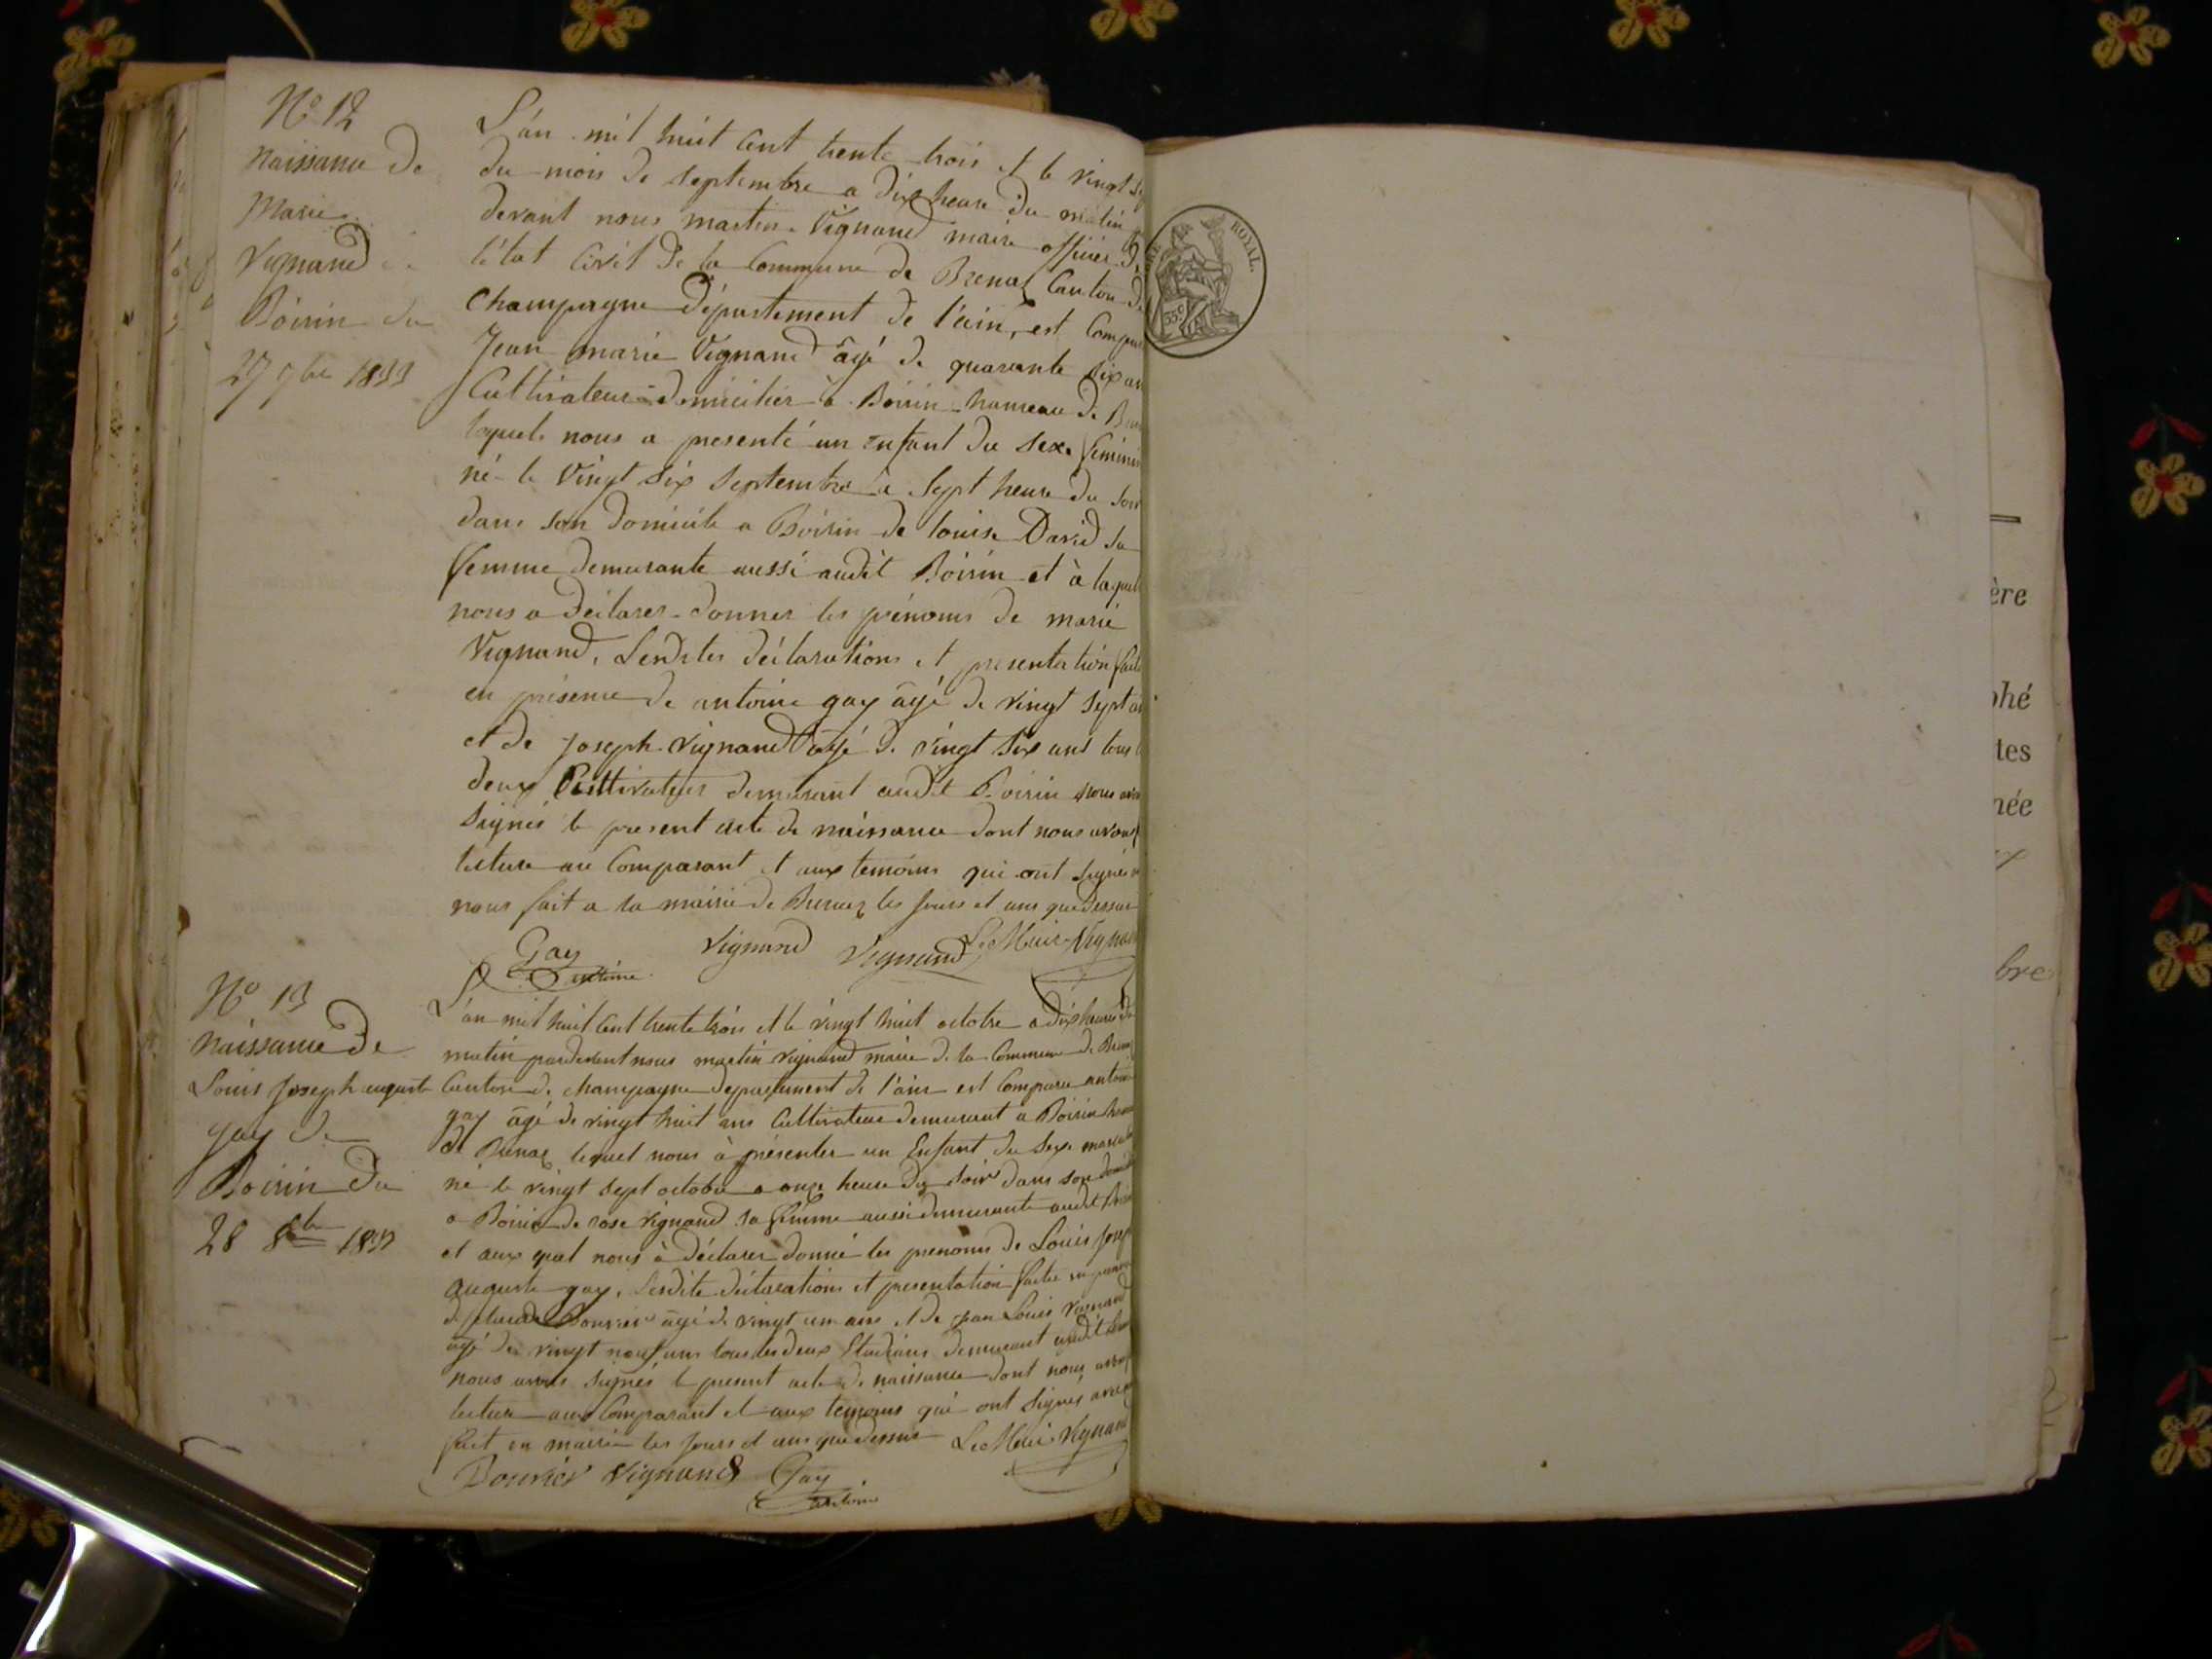 N° 12
Naissance de
Marie
Vignand
Boirin du
27 7bre 1833
L'an mil huit cent trente trois et le vingt
du mois de septembre a dix heure du matin
devant nous martin Vignand maire officier de
l'état civil de la Commune de Brenaz Canton de
Champagne département de l'ain, est
Jean marie Vignand âgé de quarante six
Cultivateur domicilier à Boirin hameau de
lequel nous a presenté un enfant du sexe féminin
né le vingt six septembre à sept heure du soir
dans son domicile a Boirin de louise David sa
femme demeurante aussi audit Boirin et à
nous a déclarer donner les prénoms de marie
Vignand, Lesdites déclarations et presentation
en présence de antoine gay âgé de vingt sept
et de joseph vignand âgé de vingt six ans tous
deux Cultivateur demeurant audit Boirin nous
signés le present acte de naissance dont nous avons
lecture au Comparant et aux temoins qui ont signés
nous fait a la mairie de Brenaz les jours et ans que dessus
Gay Vignand Vignand Le Maire Vignand
antoine
N° 13
naissance de
Louis Joseph auguste
gay de
Boirin du
28 8bre 1833
L'an mil huit cent trente trois et le vingt huit octobre a dix heures
matin pardevant nous martin vignand maire de la Commune de
Canton de champagne departement de l'ain est Comparu antoine
gay âgé de vingt huit ans Cultivateur demeurant a Boirin
de Brenaz lequel nous à présenter un Enfant du sexe
né le vingt sept octobre a onze heure du soir dans son
a Boirin de rose vignand sa femme aussi demeurante audit
et aux quel nous à déclarer donné les prenoms de Louis
auguste gay, Lesdite déclarations et presentation faite
de Bouvier âgé de vingt un ans et de jean Louis vignand
âgé de vingt neuf ans tous les deux Etudians demeurant audit
nous avons signés le present acte de naissance dont nous
lecture aux Comparant et aux temoins qui ont signés
fait en mairie les jours et ans que dessus Le Maire Vignand
Bouvier Vignand Gay
antoine
ROYAL.
35c
ère
phé
tes
née
bre